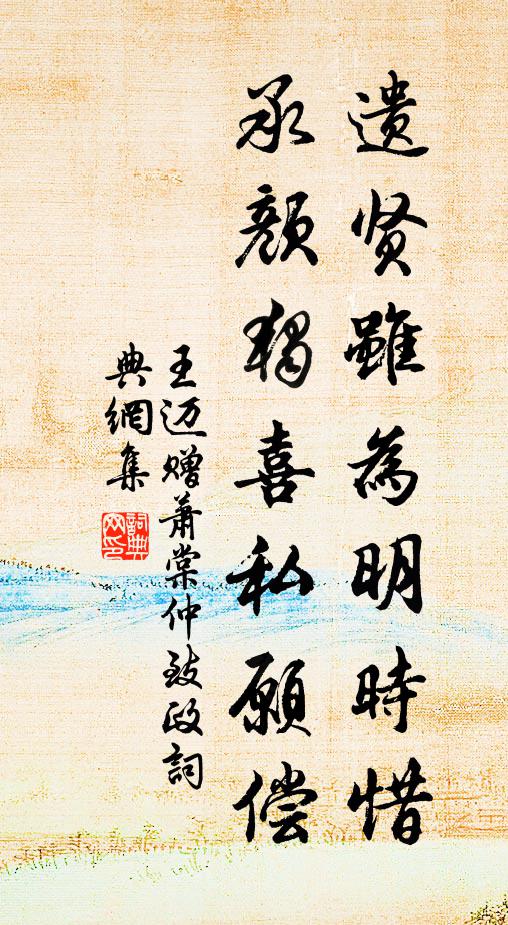 遗贤虽为明时惜
承颜独喜私愿偿
王迈赠萧棠仲致政词
典網集
詞典
网印